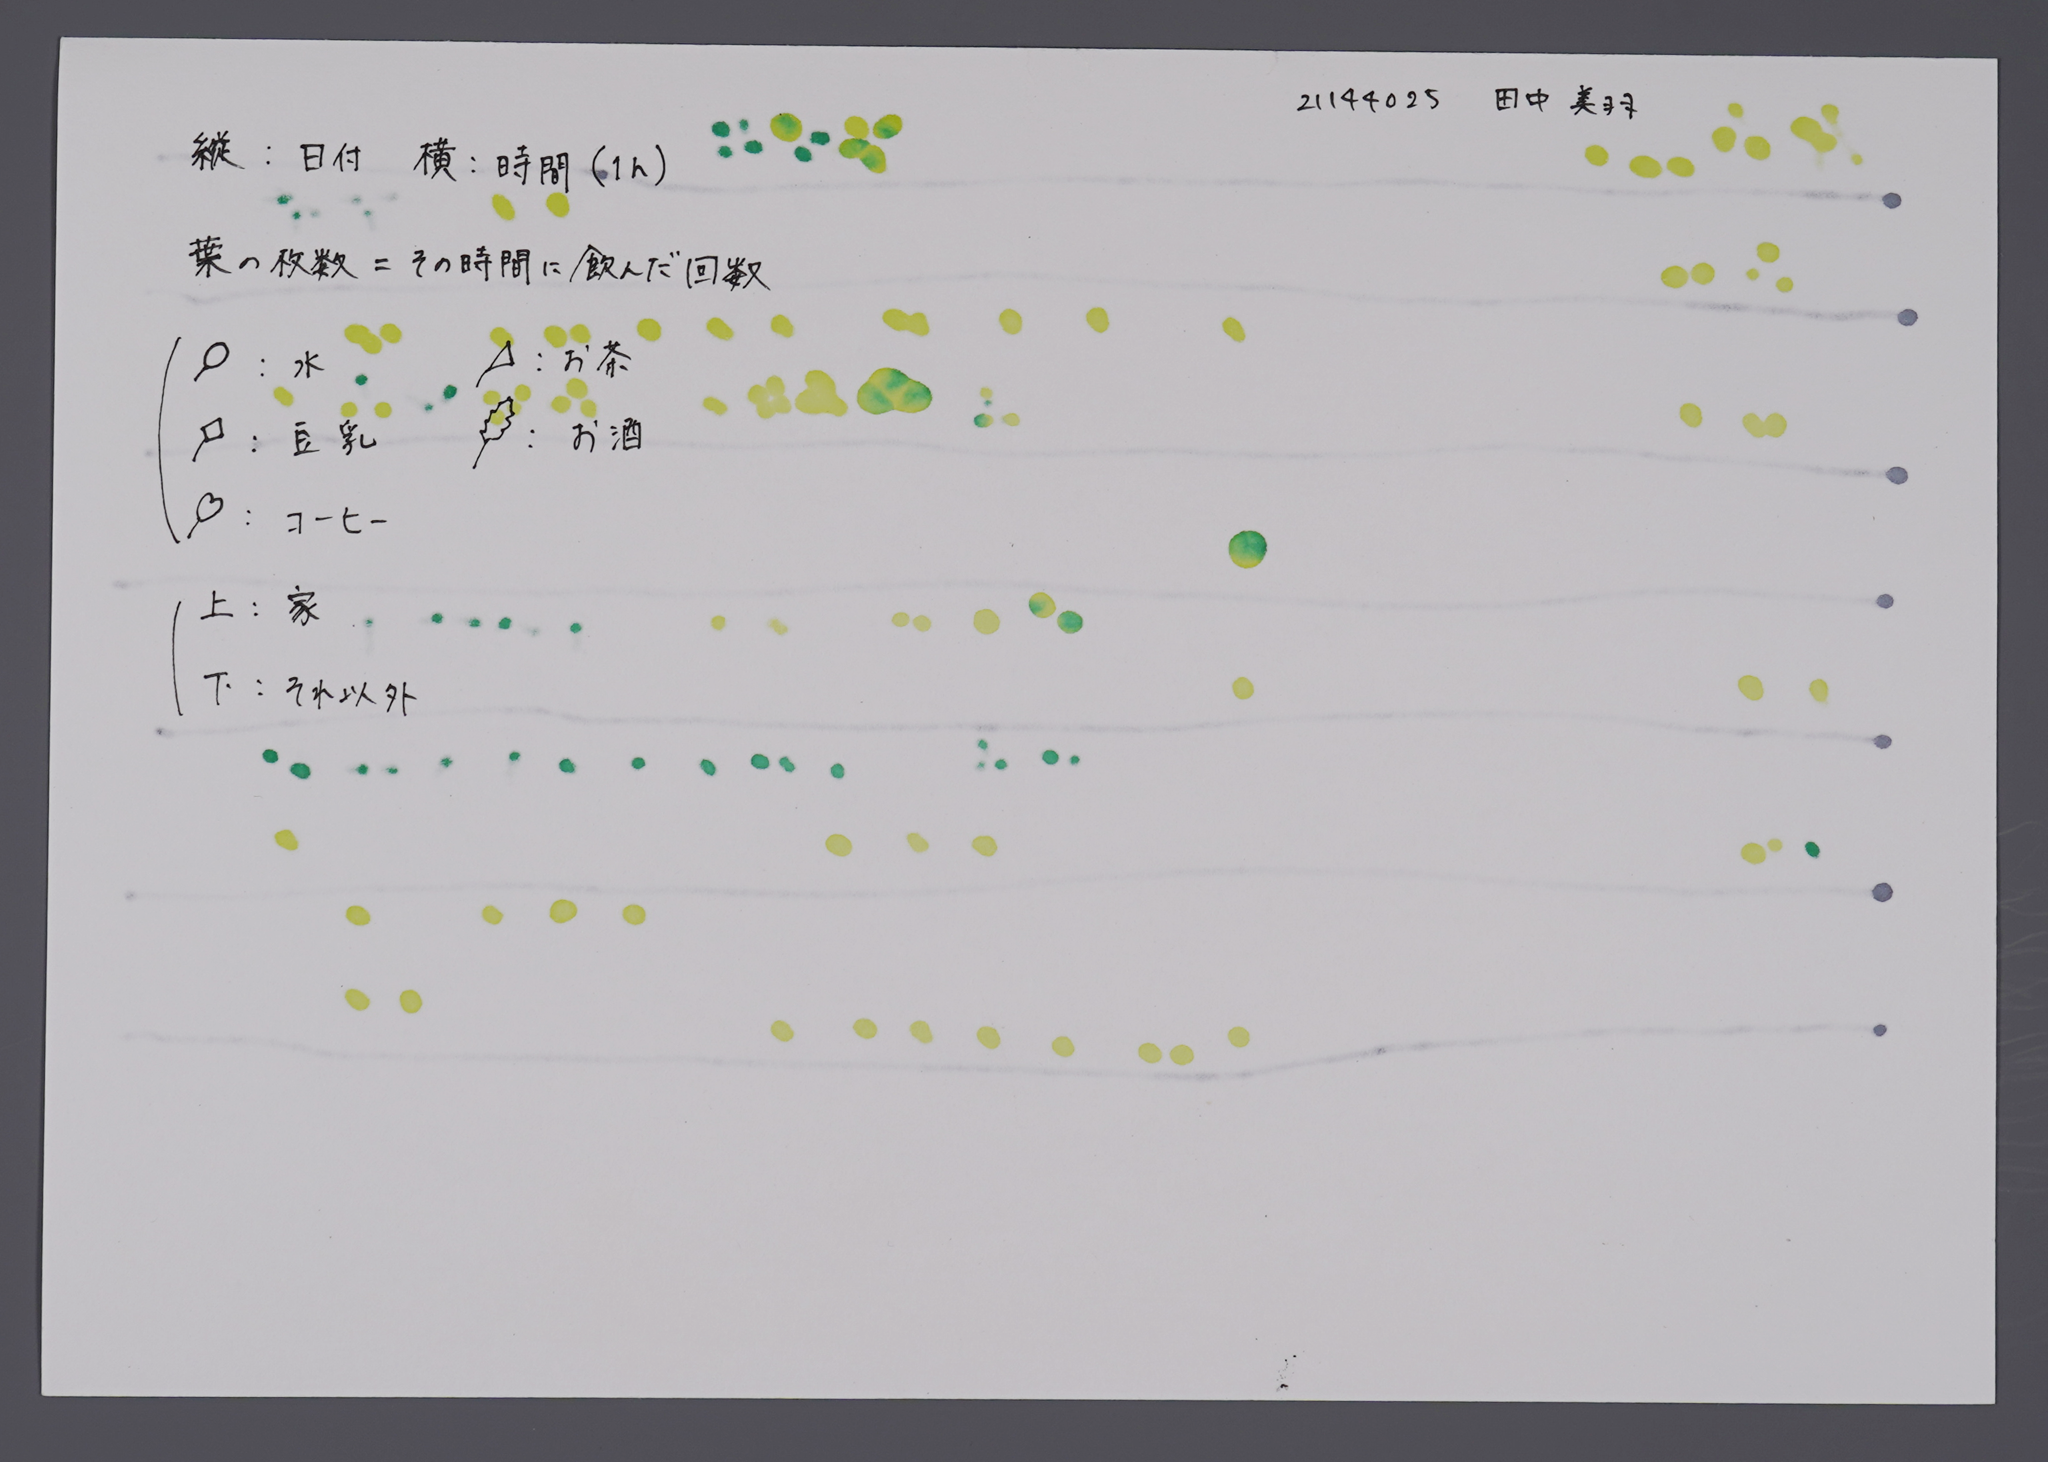 21144025 田中 美羽
縦：日付 横：時間（1h）
葉の枚数＝その時間に飲んだ回数
：水 ：お茶
：豆乳 ：お酒
：コーヒー
上：家
下：それ以外